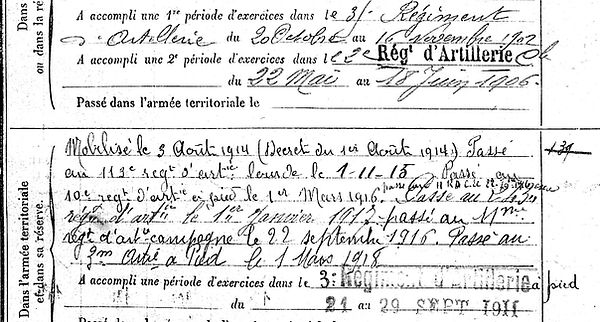 A accompli une 1re période d'exercices dans le 3e Régiment
d'Artillerie du 20 Octobre au 16 novembre 1902
A accompli une 2e période d'exercices dans le 2e Régt d'Artillerie
du 22 Mai au 18 Juin 1906.
Passé dans l'armée territoriale le
Mobilisé le 3 Août 1914 (Décret du 1er Août 1914) Passé
au 113e regt d'artie lourde le 1-11-15 Passé au
10e regt d'artie à pied le 1er Mars 1916. Passé au
regt d'artie le 1er Janvier 1917 passé au 11me
régt d'artie campagne le 22 septembre 1916. Passé au
3m Artie à Pied le 1 Mars 1918
A accompli une période d'exercices dans le 3e Régiment d'Artillerie à pied
du 21 au 29 SEPT 1911
Dans l'armée territoriale
et dans sa réserve.
Dans
ou dans la ré